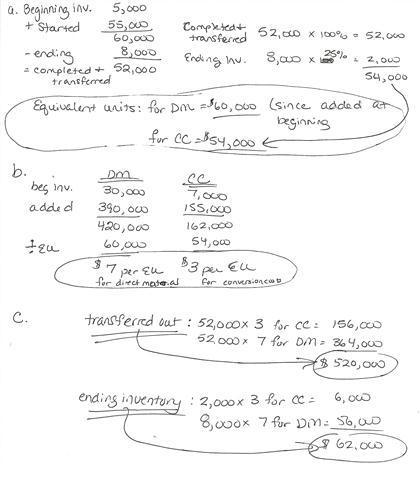 a. Beginning inv. 5,000
+ Started 55,000
60,000
- ending 8,000
= completed + transferred 52,000
Completed + transferred 52,000 x 100% = 52,000
Ending Inv. 8,000 x 25% = 2,000
54,000
Equivalent units: for DM = $60,000 (since added at
beginning
for CC = $54,000
b.
DM CC
beg inv. 30,000 7,000
added 390,000 155,000
420,000 162,000
÷ EU 60,000 54,000
$7 per EU $3 per EU
for direct material for conversion costs
c.
transferred out : 52,000 x 3 for CC = 156,000
52,000 x 7 for DM = 364,000
$ 520,000
ending inventory : 2,000 x 3 for CC = 6,000
8,000 x 7 for DM = 56,000
$ 62,000